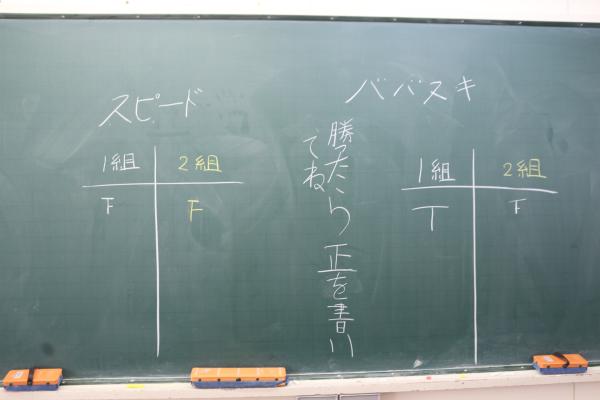 スピード
1組 2組
F F
勝ったら 正を書い
てね
ババスキ
1組 2組
T F